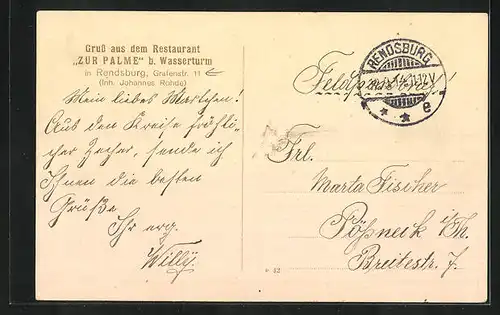 Gruß aus dem Restaurant
„ZUR PALME" b. Wasserturm
in Rendsburg, Grafenstr. 11
(Inh. Johannes Rohde)
Mein liebes Martchen!
Aus den Kreise fröhli-
cher Zecher, sende ich
Ihnen die besten
Grüße
Ihr erg.
Willy.
RENDSBURG
e
Frl.
Marta Fischer
Pößneck i/Th.
Breitestr. 7.
* 52